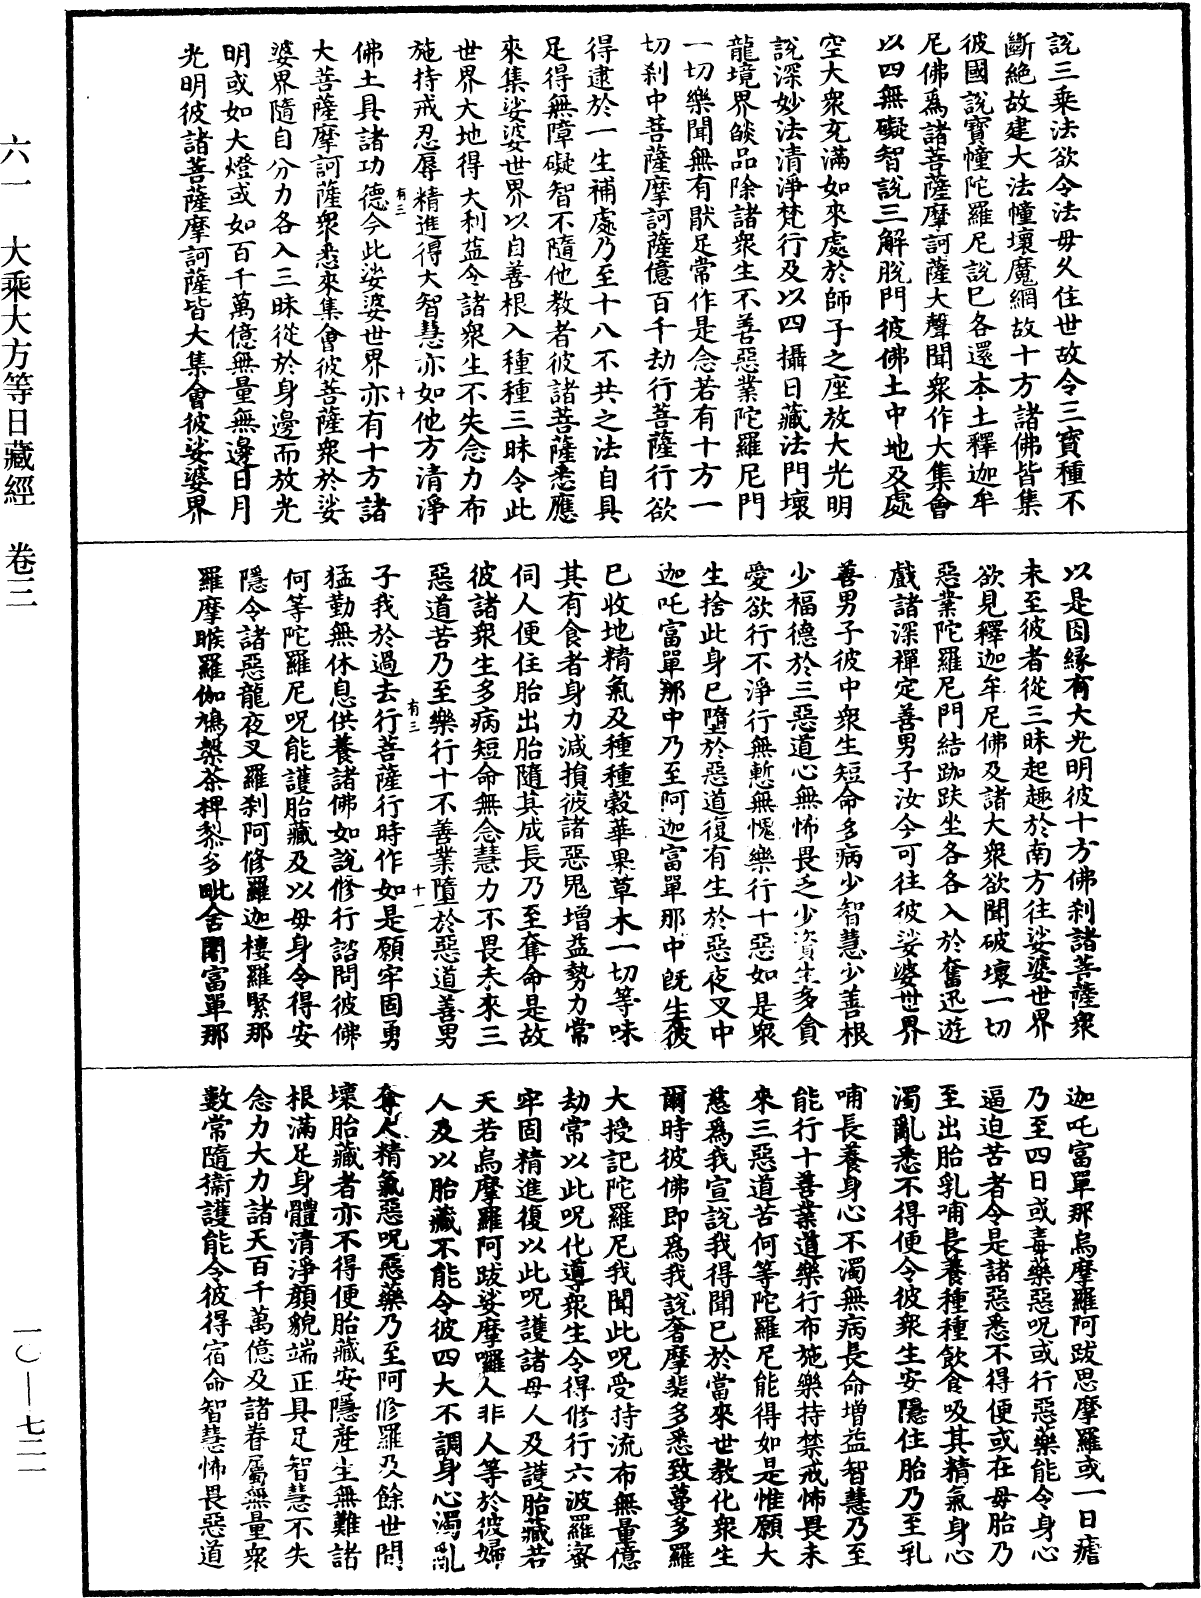 說三乘法欲令法毋久住世故令三寶種不
斷絕故建大法幢壞魔網故十方諸佛皆集
彼國說寶幢陀羅尼說已各還本土釋迦牟
尼佛爲諸菩薩摩訶薩大聲聞衆作大集會
以四無礙智說三解脫門彼佛土中地及處
空大衆充滿如來處於師子之座放大光明
說深妙法清淨梵行及以四攝日藏法門壞
龍境界燄品除諸衆生不善惡業陀羅尼門
一切樂聞無有猒足常作是念若有十方一
切刹中菩薩摩訶薩億百千劫行菩薩行欲
得逮於一生補處乃至十八不共之法自具
足得無障礙智不隨他教者彼諸菩薩悉應
來集娑婆世界以自善根入種種三昧令此
世界大地得大利益令諸衆生不失念力布
施持戒忍辱精進得大智慧亦如他方清淨
有三
十
佛土具諸功德今此娑婆世界亦有十方諸
大菩薩摩訶薩衆悉來集會彼菩薩衆於娑
婆界隨自分力各入三昧從於身邊而放光
明或如大燈或如百千萬億無量無邊日月
光明彼諸菩薩摩訶薩皆大集會彼娑婆界
以是因緣有大光明彼十方佛刹諸菩薩衆
未至彼者從三昧起趣於南方往娑婆世界
欲見釋迦牟尼佛及諸大衆欲聞破壞一切
惡業陀羅尼門結跏趺坐各各入於奮迅遊
戲諸深禪定善男子汝今可往彼娑婆世界
善男子彼中衆生短命多病少智慧少善根
少福德於三惡道心無怖畏乏少資生多貪
愛欲行不淨行無慙無愧樂行十惡如是衆
生捨此身已墮於惡道復有生於惡夜叉中
迦吒富單那中乃至阿迦富單那中旣生彼
已收地精氣及種種穀華果草木一切等味
其有食者身力減損彼諸惡鬼增益勢力常
伺人便住胎出胎隨其成長乃至奪命是故
彼諸衆生多病短命無念慧力不畏未來三
惡道苦乃至樂行十不善業墮於惡道善男
有三
十一
子我於過去行菩薩行時作如是願牢固勇
猛勤無休息供養諸佛如說修行諮問彼佛
何等陀羅尼呪能護胎藏及以母身令得安
隱令諸惡龍夜叉羅刹阿修羅迦樓羅緊那
羅摩睺羅伽鳩槃荼裨黎多毗舍闍富單那
迦吒富單那烏摩羅阿跋思摩羅或一日瘧
乃至四日或毒藥惡呪或行惡藥能令身心
逼迫苦者令是諸惡悉不得便或在母胎乃
至出胎乳哺長養種種飲食吸其精氣身心
濁亂悉不得便令彼衆生安隱住胎乃至乳
哺長養身心不濁無病長命增益智慧乃至
能行十善業道樂行布施樂持禁戒怖畏未
來三惡道苦何等陀羅尼能得如是惟願大
慈爲我宣說我得聞已於當來世教化衆生
爾時彼佛即爲我說奢摩裴多悉致蔓多羅
大授記陀羅尼我聞此呪受持流布無量億
劫常以此呪化導衆生令得修行六波羅蜜
牢固精進復以此呪護諸母人及護胎藏若
天若烏摩羅阿跋娑摩囉人非人等於彼婦
人及以胎藏不能令彼四大不調身心濁亂
奪人精氣惡呪惡藥乃至阿修羅及餘世間
壞胎藏者亦不得便胎藏安隱產生無難諸
根滿足身體清淨顏貌端正具足智慧不失
念力大力諸天百千萬億及諸眷屬無量衆
數常隨衞護能令彼得宿命智慧怖畏惡道
六一　大乘大方等日藏經　卷三
一〇—七二一